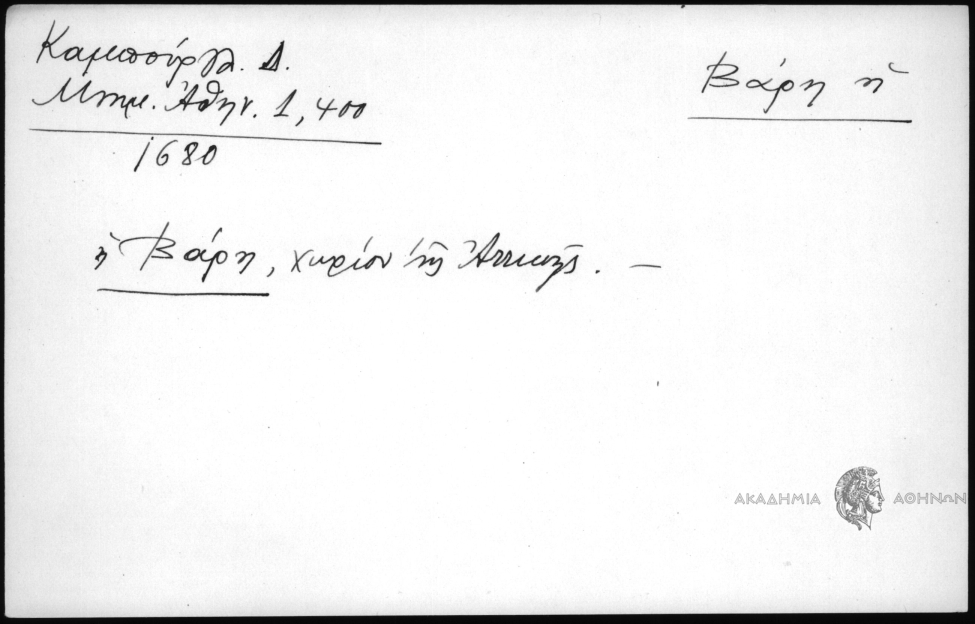 Καμπούρογλ. Δ.
Μνημ. Ἀθην. 1, 400
1680
Βάρη ἡ
ἡ Βάρη, χωρίον τῆς Ἀττικῆς. —
ΑΚΑΔΗΜΙΑ ΑΘΗΝΩΝ